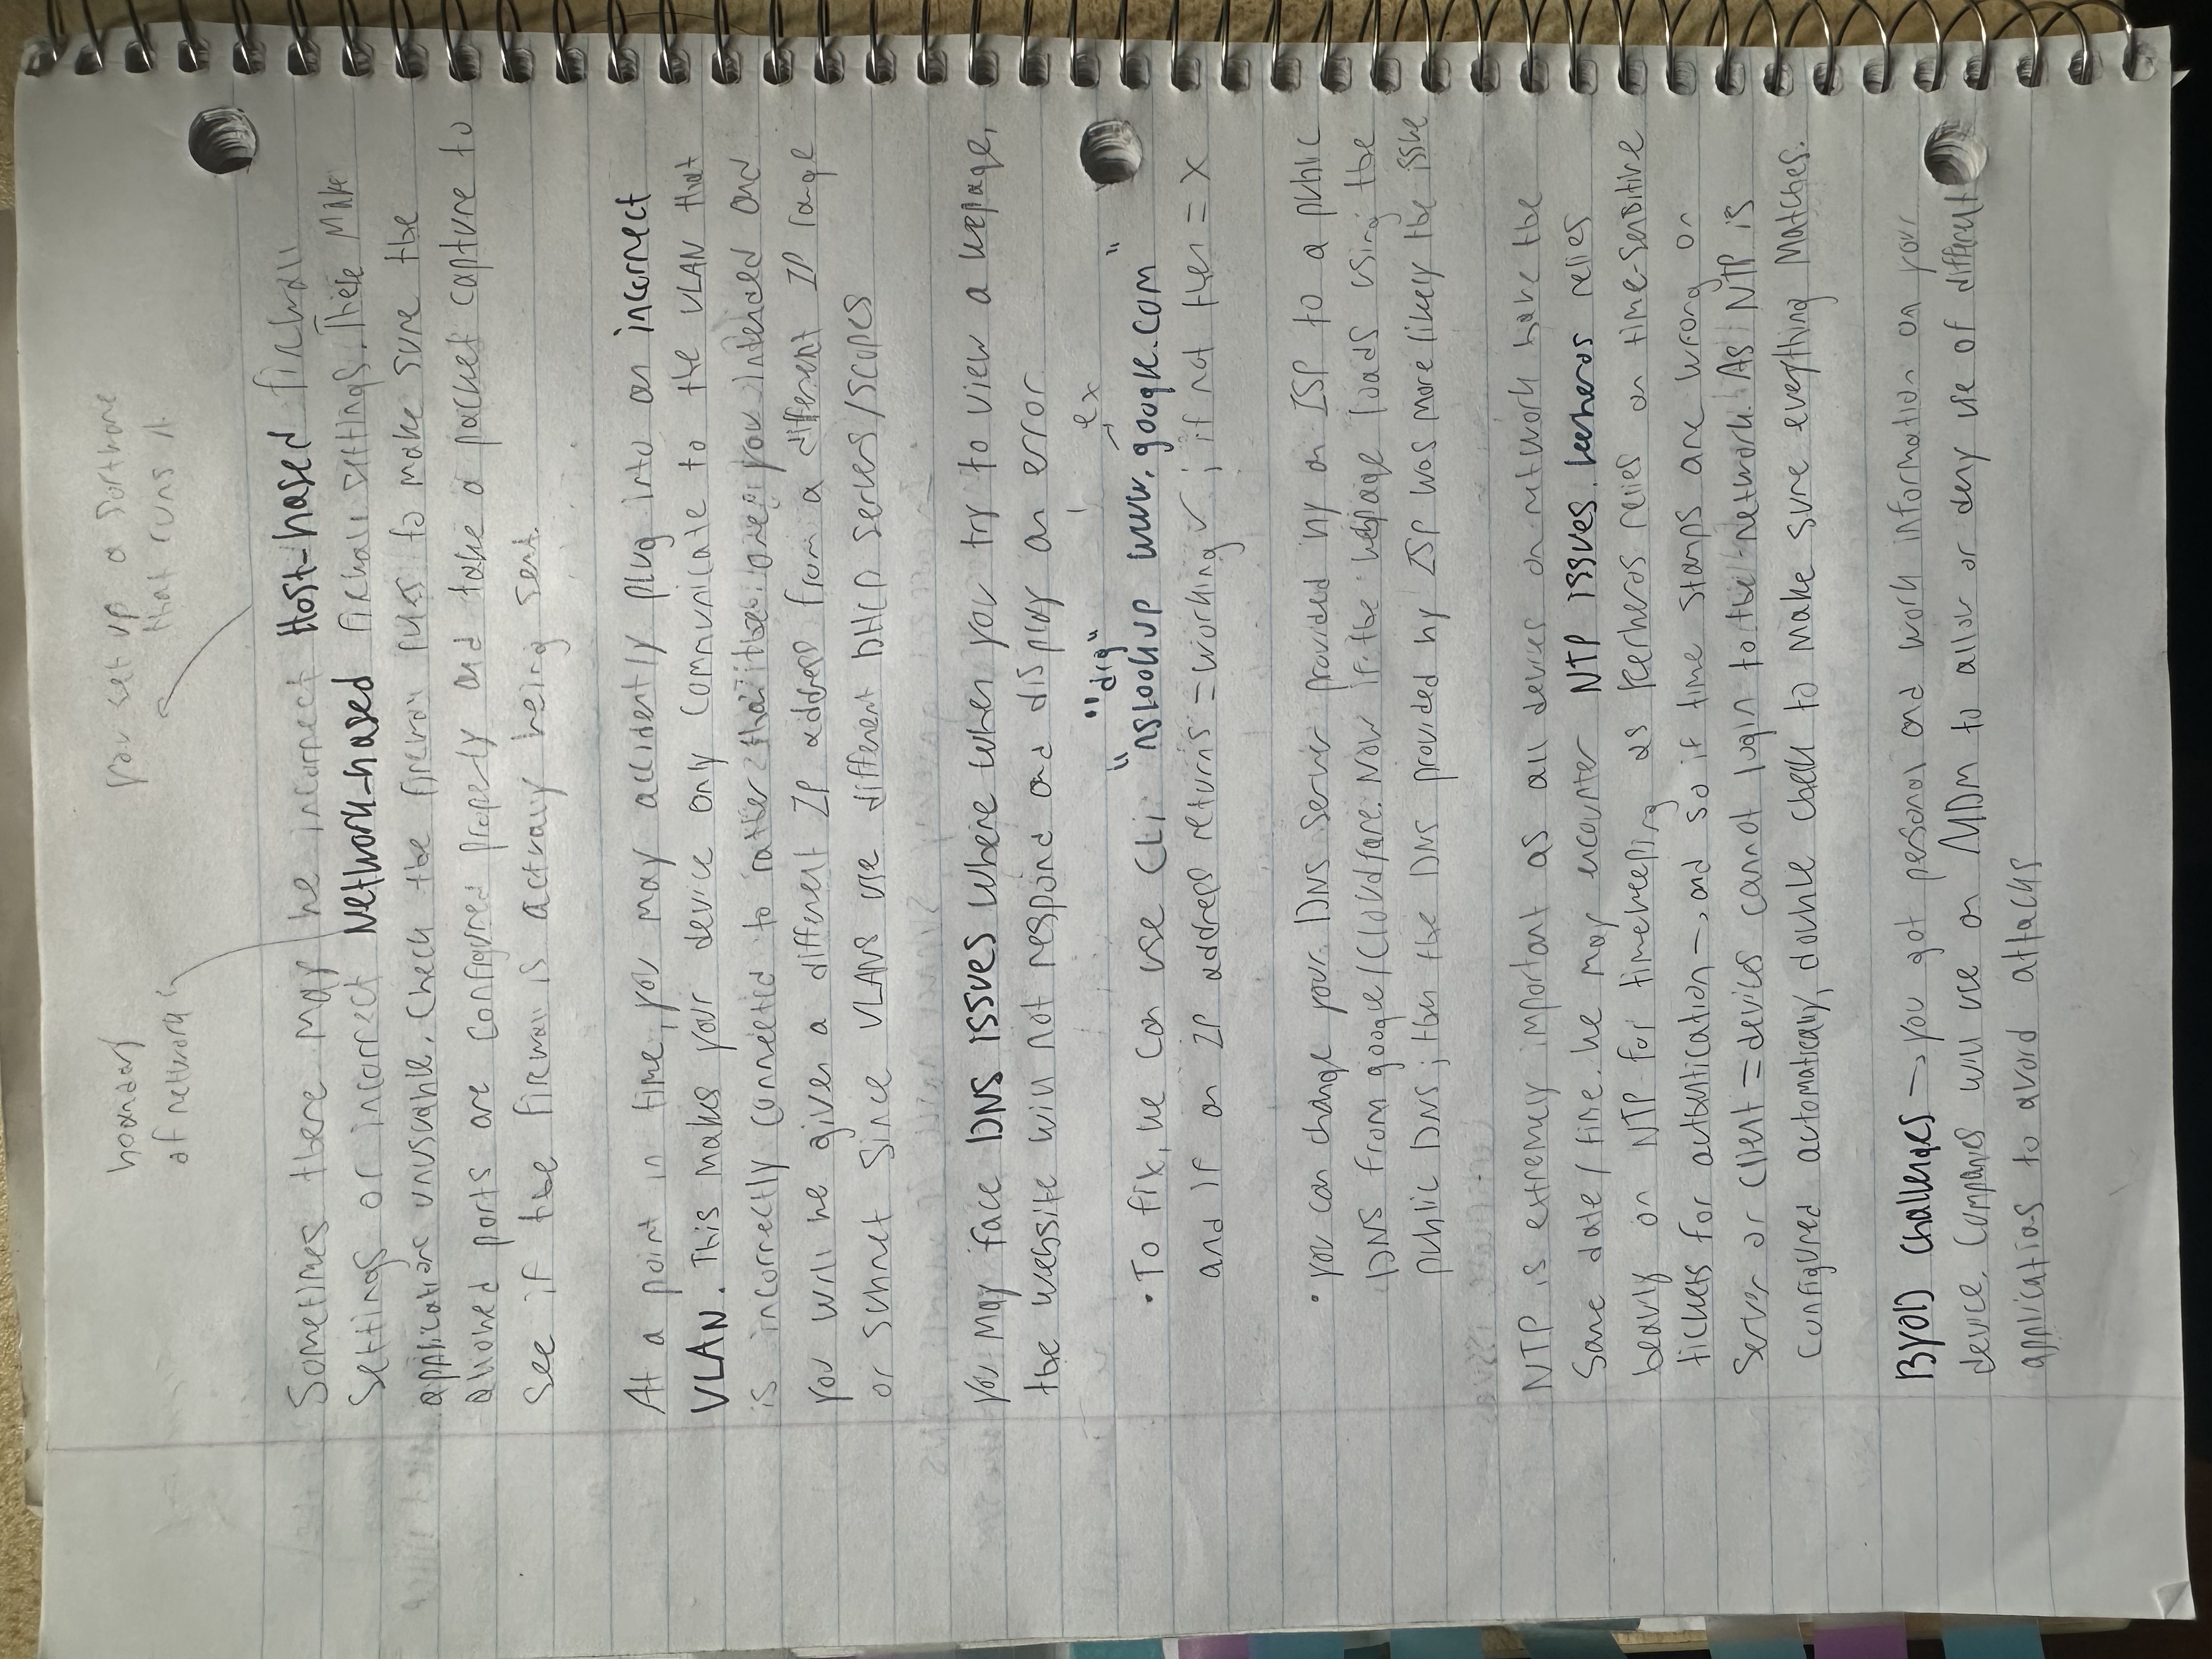 boundary
of network
you set up a software
that runs it
Sometimes there may be incorrect Host-based firewall
settings or incorrect Network-based firewall settings. These make
applications unusuable. Check the firewall rules to make sure the
allowed ports are configured properly and take a packet capture to
see if the firewall is actually being sent.
At a point in time, you may accidently plug into an incorrect
VLAN. This makes your device only communicate to the VLAN that
is incorrectly connected to rather than the one you intended and
you will be given a different IP address from a different IP range
or subnet since VLANs use different DHCP servers/scopes
You may face DNS issues where when you try to view a wepage,
the website will not respond and display an error
""dig"
ex
• To fix, we can use CLI "nslookup www.google.com"
and if an IP address returns = working ✓ ; if not then = X
• you can change your DNS server provided by an ISP to a public
DNS from google/Cloudfare. Now if the webpage loads using the
public DNS; then the DNS provided by ISP was more likely the issue
NTP is extremely important as all devices on network have the
same date/time. We may encounter NTP issues. Kerberos relies
heavily on NTP for timekeeping as Kerberos relies on time-sensitive
tickets for authentication → and so if time stamps are wrong on
server or client = devices cannot login to the network. As NTP is
configured automatically, double check to make sure everything matches.
BYOD challenges → you got personal and work information on your
device. Companies will use an MDM to allow or deny use of different
applications to avoid attacks